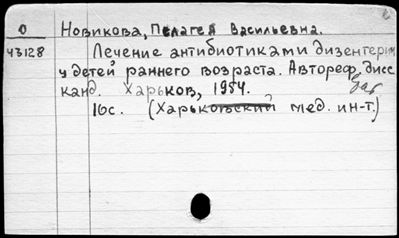 O Новикова, Пелагея Васильевна.
43128 Лечение антибиотиками дизентерии
у детей раннего возраста. Автореф. дисс
канд. Харьков, 1954.
16с. (Харьковский мед. ин-т.)